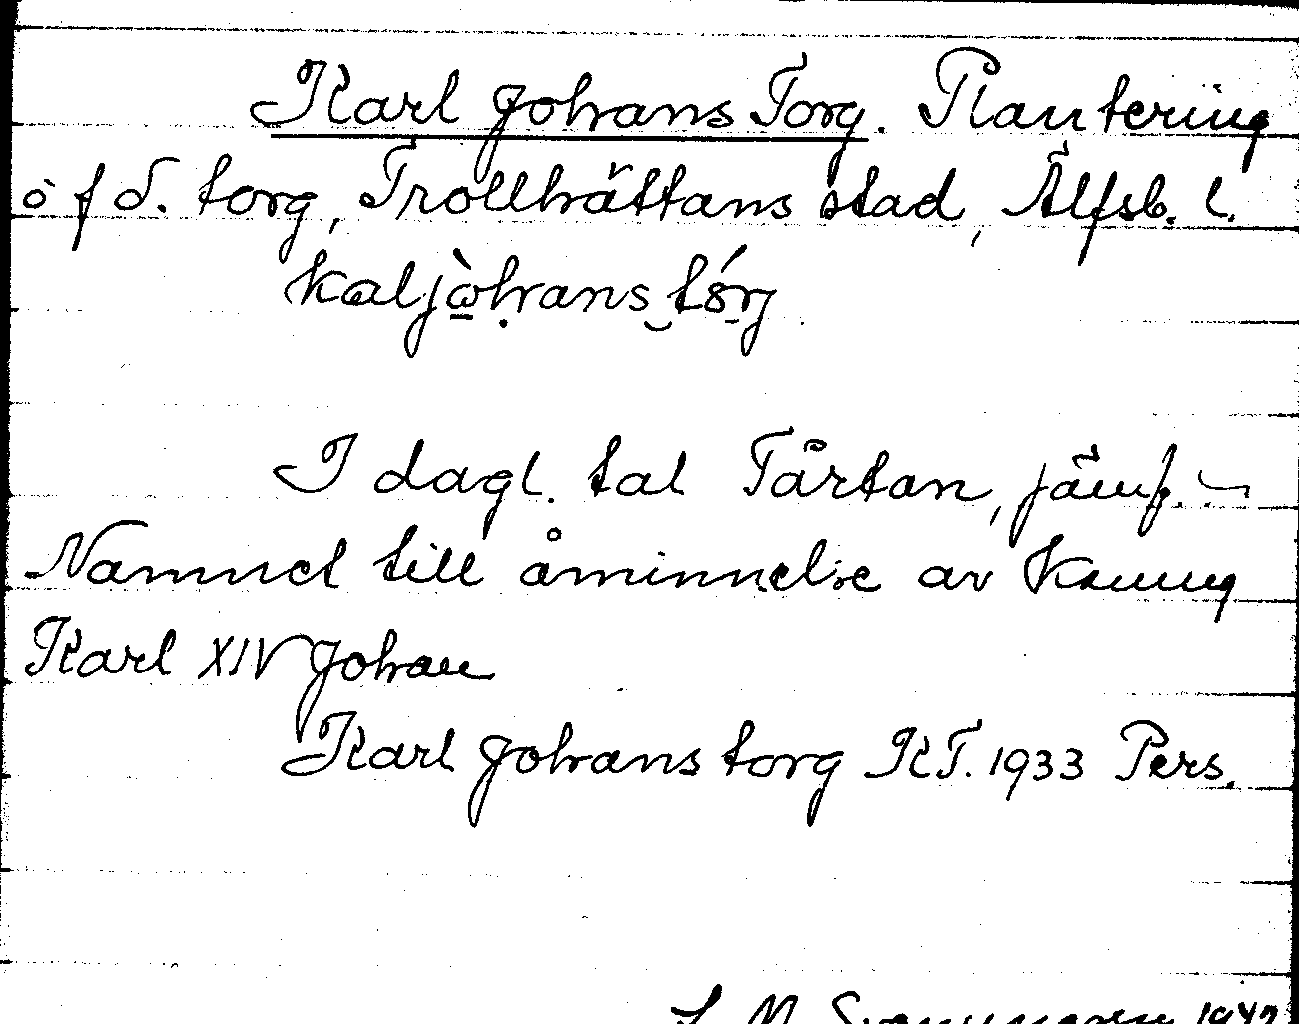 Karl Johans Torg. Plantering
o f d. torg, Trollhättans stad, Älfsb. l.
kaljòhans tórj
I dagl. tal Tårtan, jämf.
Namnet till åminnelse av Konung
Karl XIV Johan
Karl Johans torg KT. 1933 Pers.